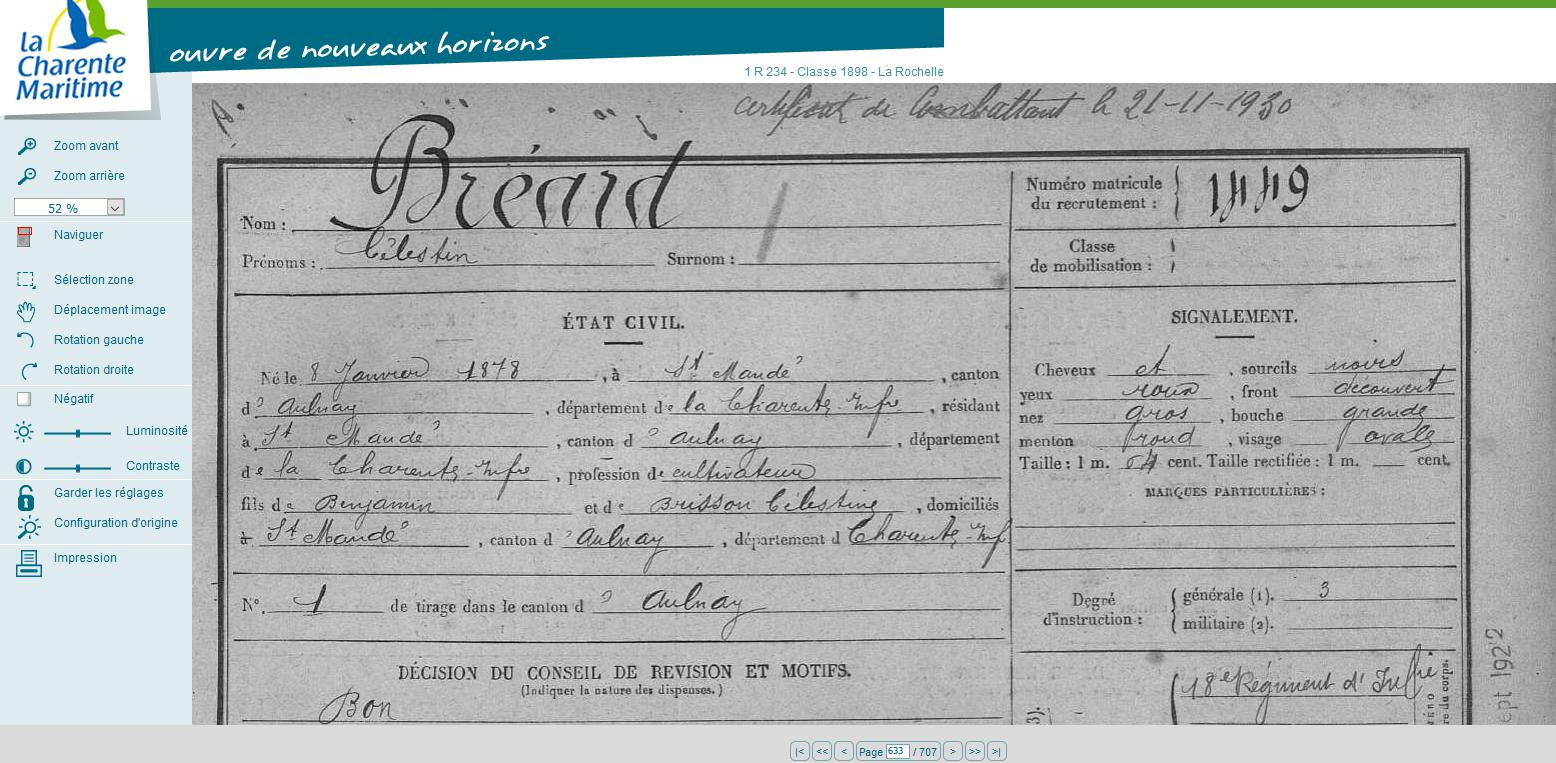 la
Charente
Maritime
ouvre de nouveaux horizons
1 R 234 - Classe 1898 - La Rochelle
Zoom avant
Zoom arrière
52 %
Naviguer
Sélection zone
Déplacement image
Rotation gauche
Rotation droite
Négatif
Luminosité
Contraste
Garder les réglages
Configuration d'origine
Impression
certificat de Combattant le 21-11-1930
Nom : Bréard
Prénoms : Célestin Surnom :
Numéro matricule
du recrutement : 1449
Classe
de mobilisation :
ÉTAT CIVIL.
Né le 8 Janvier 1878, à St Mandé, canton
d' Aulnay, département de la Charente-Infre, résidant
à St Mandé, canton d' Aulnay, département
de la Charente-Infre, profession de cultivateur
fils de Benjamin et de Brisson Célestine, domiciliés
à St Mandé, canton d' Aulnay, département d Charente-Inf
N°. 1 de tirage dans le canton d' Aulnay
DÉCISION DU CONSEIL DE REVISION ET MOTIFS.
(Indiquer la nature des dispenses.)
Bon
SIGNALEMENT.
Cheveux et, sourcils noirs
yeux roux, front découvert
nez gros, bouche grande
menton rond, visage ovale
Taille : 1 m. 64 cent. Taille rectifiée : 1 m. cent.
MARQUES PARTICULIÈRES :
Degré
d'instruction :
générale (1). 3
militaire (2).
18e Régiment d' Infie
re du corps.
ept 1922
|< << < Page 633 / 707 > >> >|